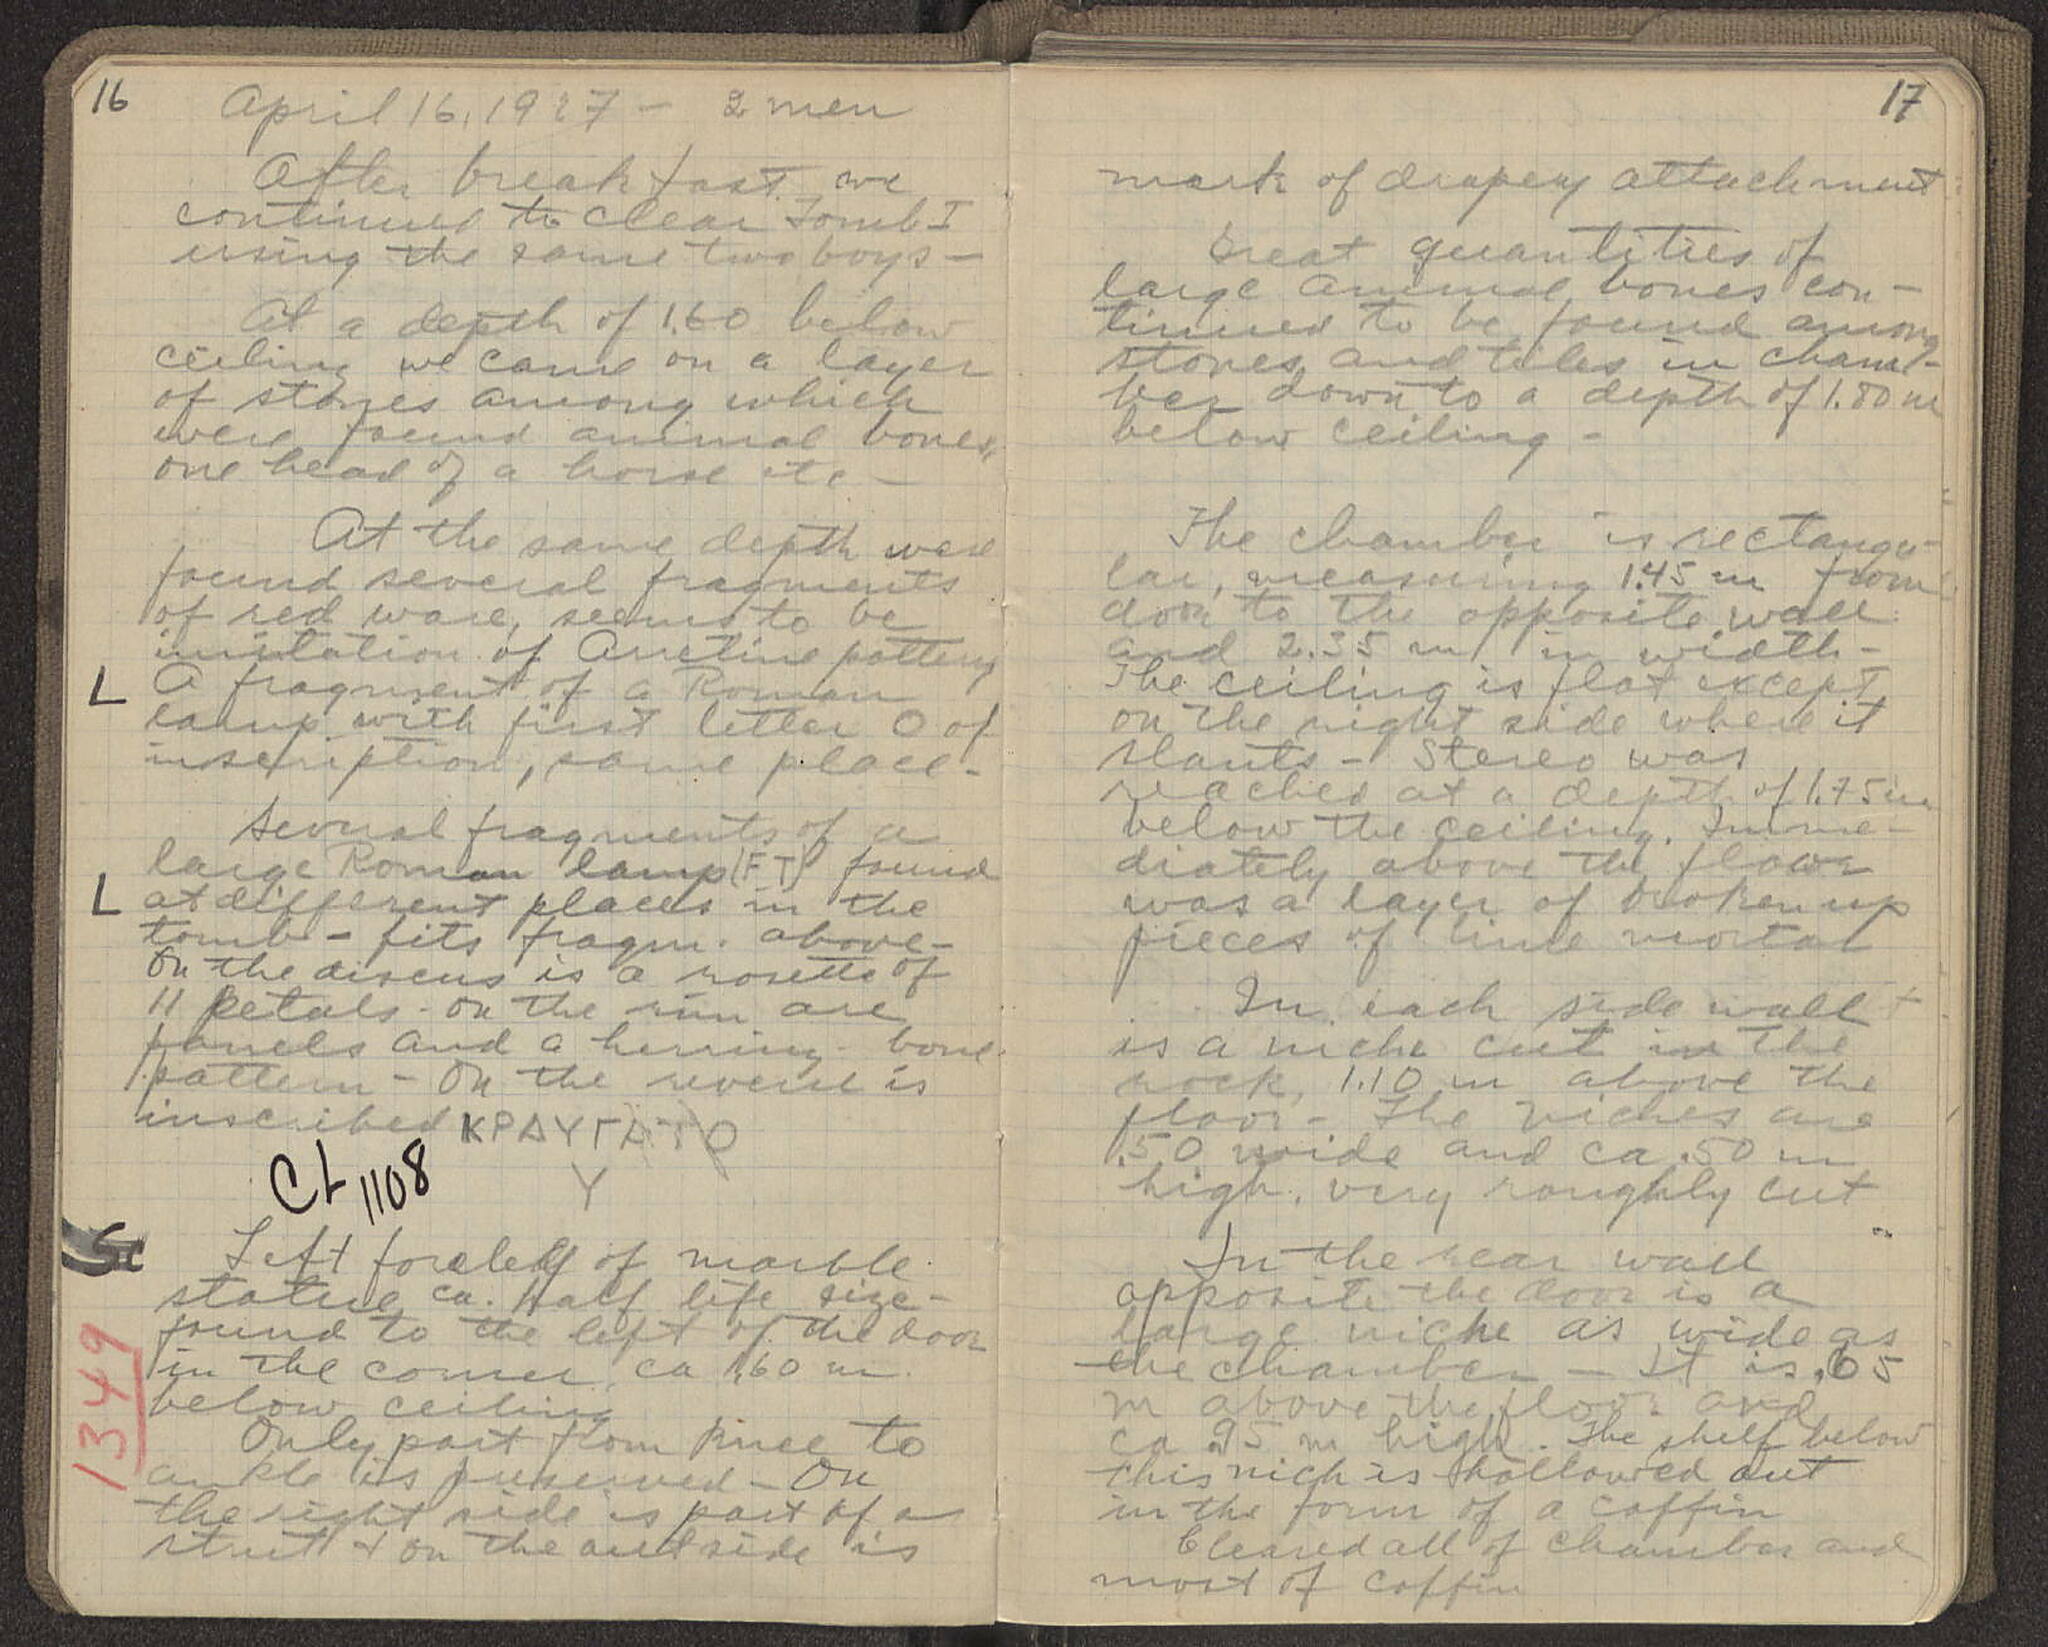 16
April 16, 1927 - 2 men
After breakfast we
continued to clear Tomb I
using the same two boys -
At a depth of 1.60 below
ceiling we came on a layer
of stones among which
were found animal bones,
one head of a horse etc -
At the same depth were
found several fragments
of red ware, seems to be
imitation of Arretine pottery
L A fragment of a Roman
lamp with first letter O of
inscription, same place -
Several fragments of a
large Roman lamp (FT) found
L at different places in the
tomb - fits fragm. above -
On the discus is a rosette of
11 petals - On the rim are
panels and a herring-bone
pattern - On the reverse is
inscribed ΚΡΑΥΓΑΤΟ
Υ
CL 1108
Sc Left foreleg of marble
statue ca. half life size -
found to the left of the door
in the corner, ca 1.60 m
below ceiling
1349
Only part from knee to
ankle is preserved - On
the right side is part of a
strut + on the outside is
17
mark of drapery attachment
Great quantities of
large animal bones con-
tinued to be found among
stones and tiles in cham-
ber down to a depth of 1.80 m
below ceiling -
The chamber is rectangu-
lar, measuring 1.45 m from
door to the opposite wall
and 2.35 m in width -
The ceiling is flat except
on the right side where it
slants - Stereo was
reached at a depth of 1.75 m
below the ceiling. Imme-
diately above the floor
was a layer of broken up
pieces of lime mortar
In each side wall +
is a niche cut in the
rock, 1.10 m above the
floor - The niches are
.50 wide and ca .50 m
high, very roughly cut
In the rear wall
opposite the door is a
large niche as wide as
the chamber - It is .65
m above the floor and
ca .95 m high. The shelf below
this nich is hollowed out
in the form of a coffin
Cleared all of chamber and
most of coffin